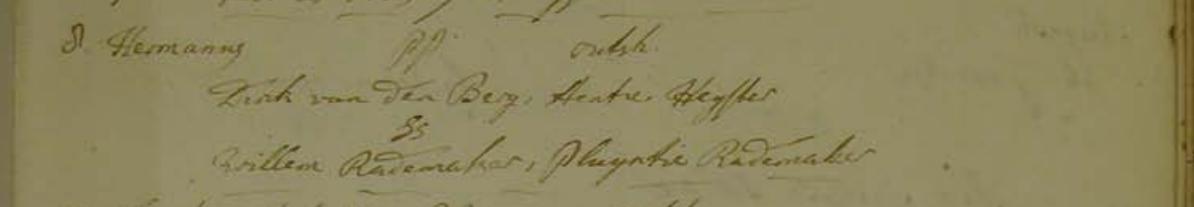 8. Hermanus pp. outsh.
Dirk van den Berg, Hentre. Heyster
SS
Willem Rademaker, Pluyntie Rademaker